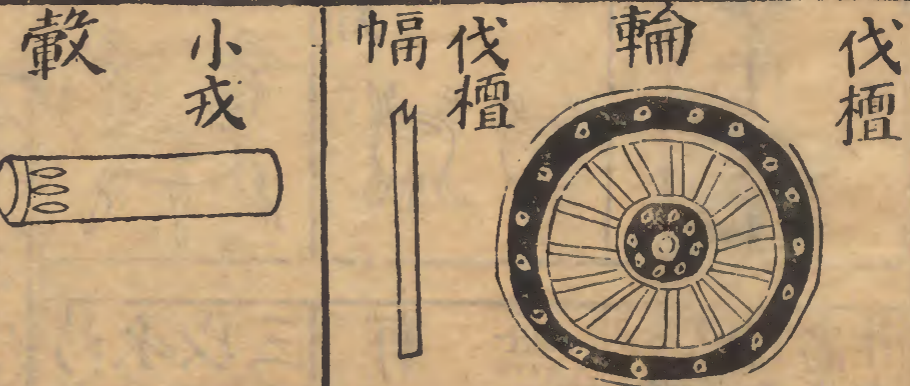 伐檀
輪
伐檀
幅
小戎
轂